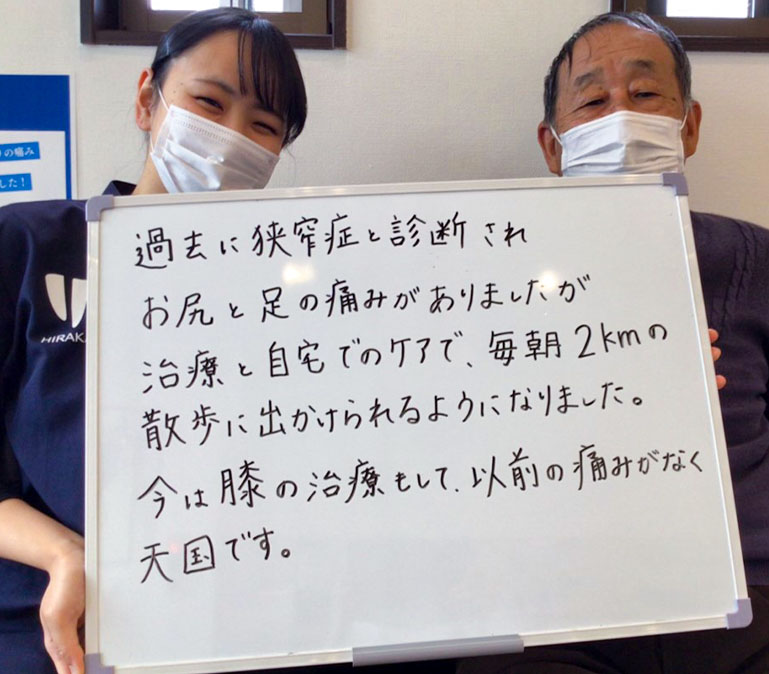 の痛み
した！
HIRAKA
過去に狭窄症と診断され
お尻と足の痛みがありましたが
治療と自宅でのケアで、毎朝2kmの
散歩に出かけられるようになりました。
今は膝の治療もして、以前の痛みがなく
天国です。